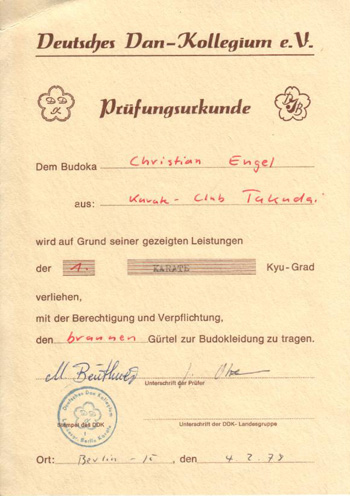 Deutsches Dan-Kollegium e.V.
Prüfungsurkunde
Dem Budoka Christian Engel
aus: Karate-Club Takudai
wird auf Grund seiner gezeigten Leistungen
der 1. KARATE Kyu-Grad
verliehen,
mit der Berechtigung und Verpflichtung,
den braunen Gürtel zur Budokleidung zu tragen.
Unterschrift der Prüfer
Deutsches Dan Kollegium
Stempel des DDK Unterschrift der DDK-Landesgruppe
Berlin Karate
Ort: Berlin-15, den 4.2.78